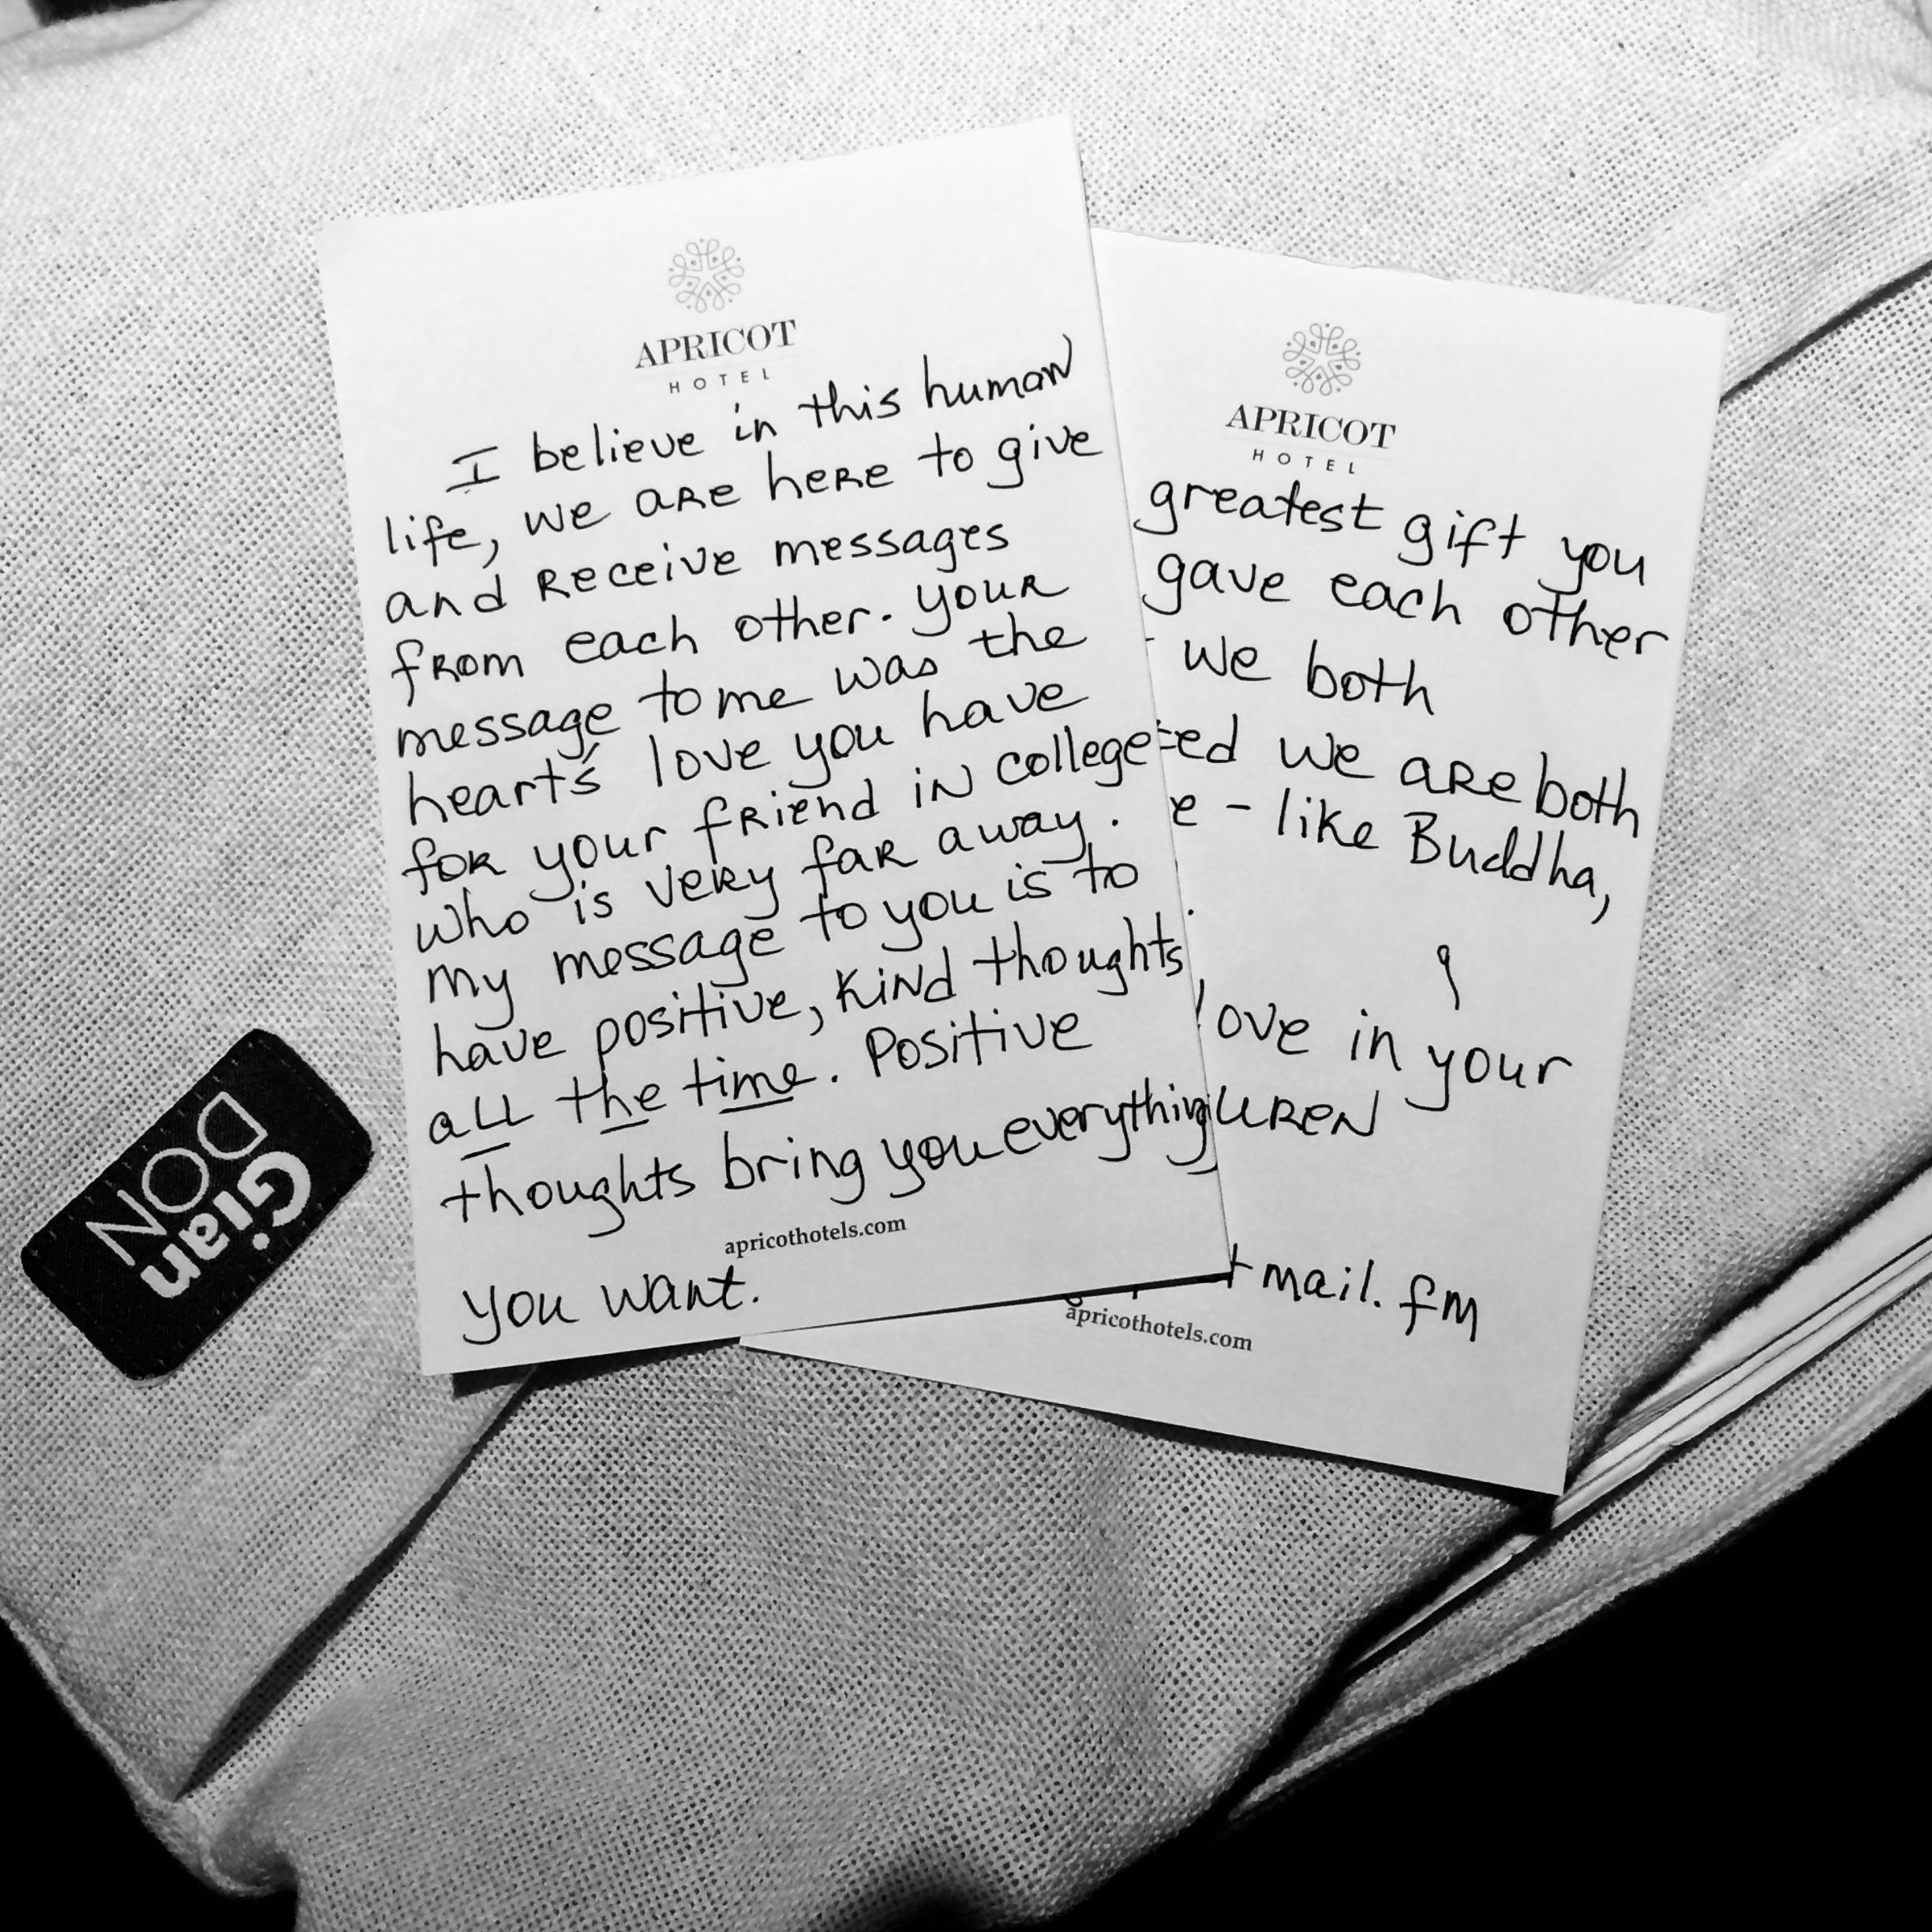 APRICOT
HOTEL
I believe in this human
life, we are here to give
and receive messages
from each other. your
message to me was the
heart's love you have
for your friend in college
who is very far away.
My message to you is to
have positive, kind thoughts
all the time. Positive
thoughts bring you everything
apricothotels.com
you want.
APRICOT
HOTEL
greatest gift you
gave each other
we both
we are both
- like Buddha,
love in your
mail.fm
apricothotels.com
Gian
DON